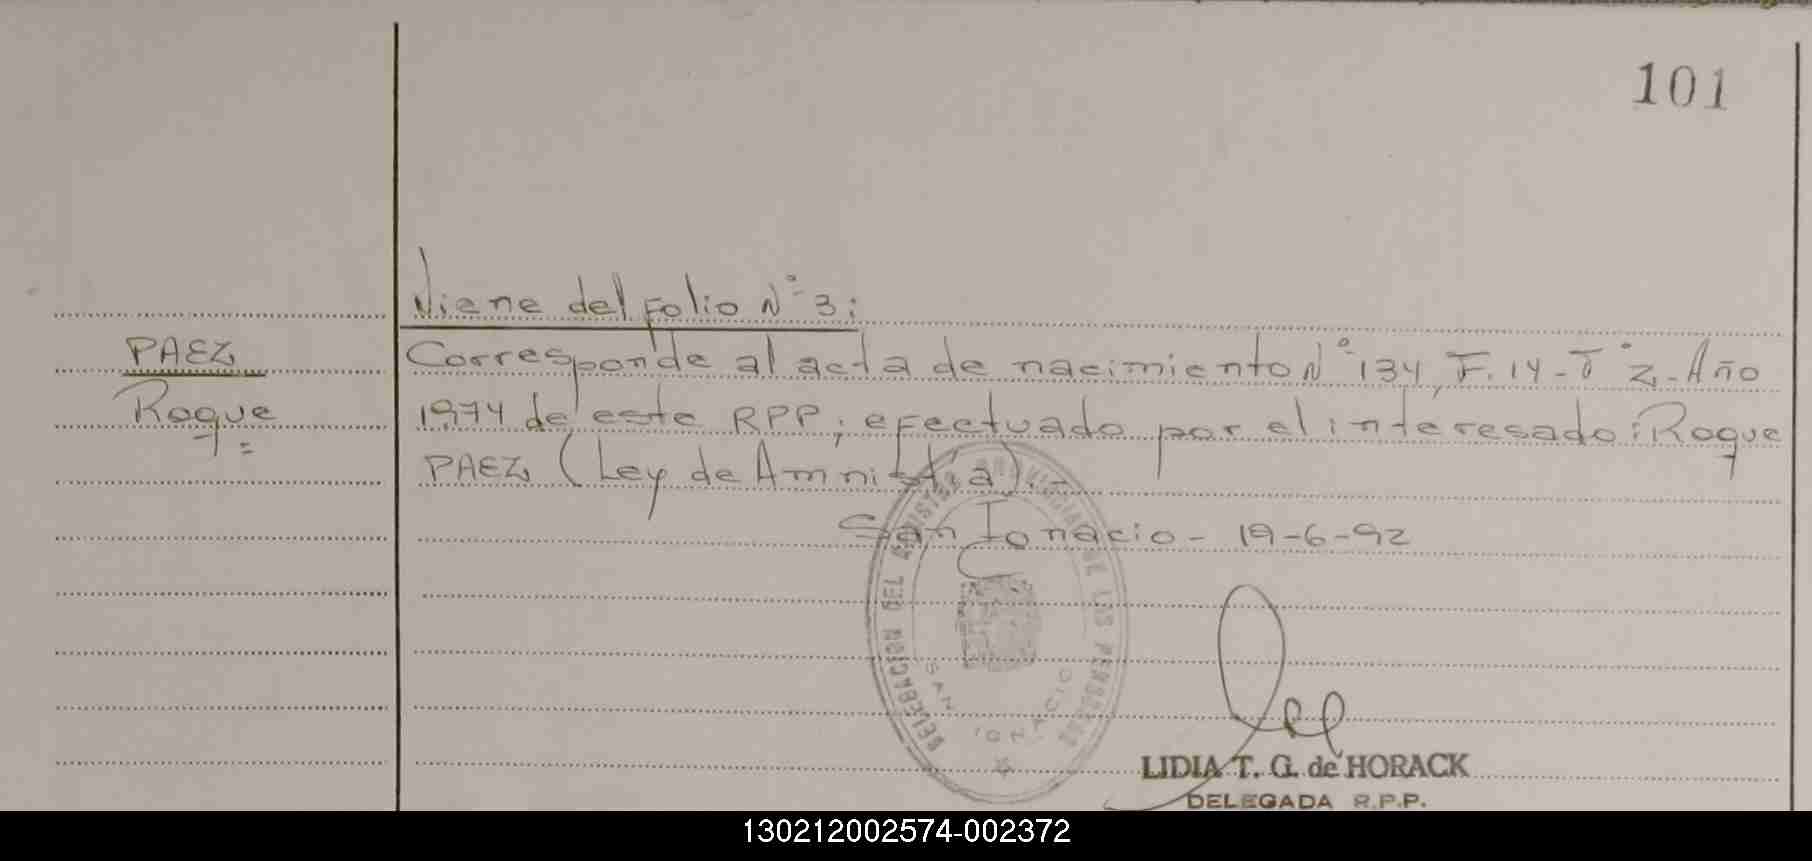 101
Viene del Folio N° 3:
PAEZ
Roque
Corresponde al acta de nacimiento N° 134, F. 14 - T° 2 - Año
1974 de este RPP; efectuado por el interesado: Roque
PAEZ (Ley de Amnistía).-
San Ignacio - 19-6-92
DELEGACION DEL REGISTRO PROVINCIAL DE LAS PERSONAS
SAN IGNACIO
LIDIA T. G. de HORACK
DELEGADA R.P.P.
130212002574-002372